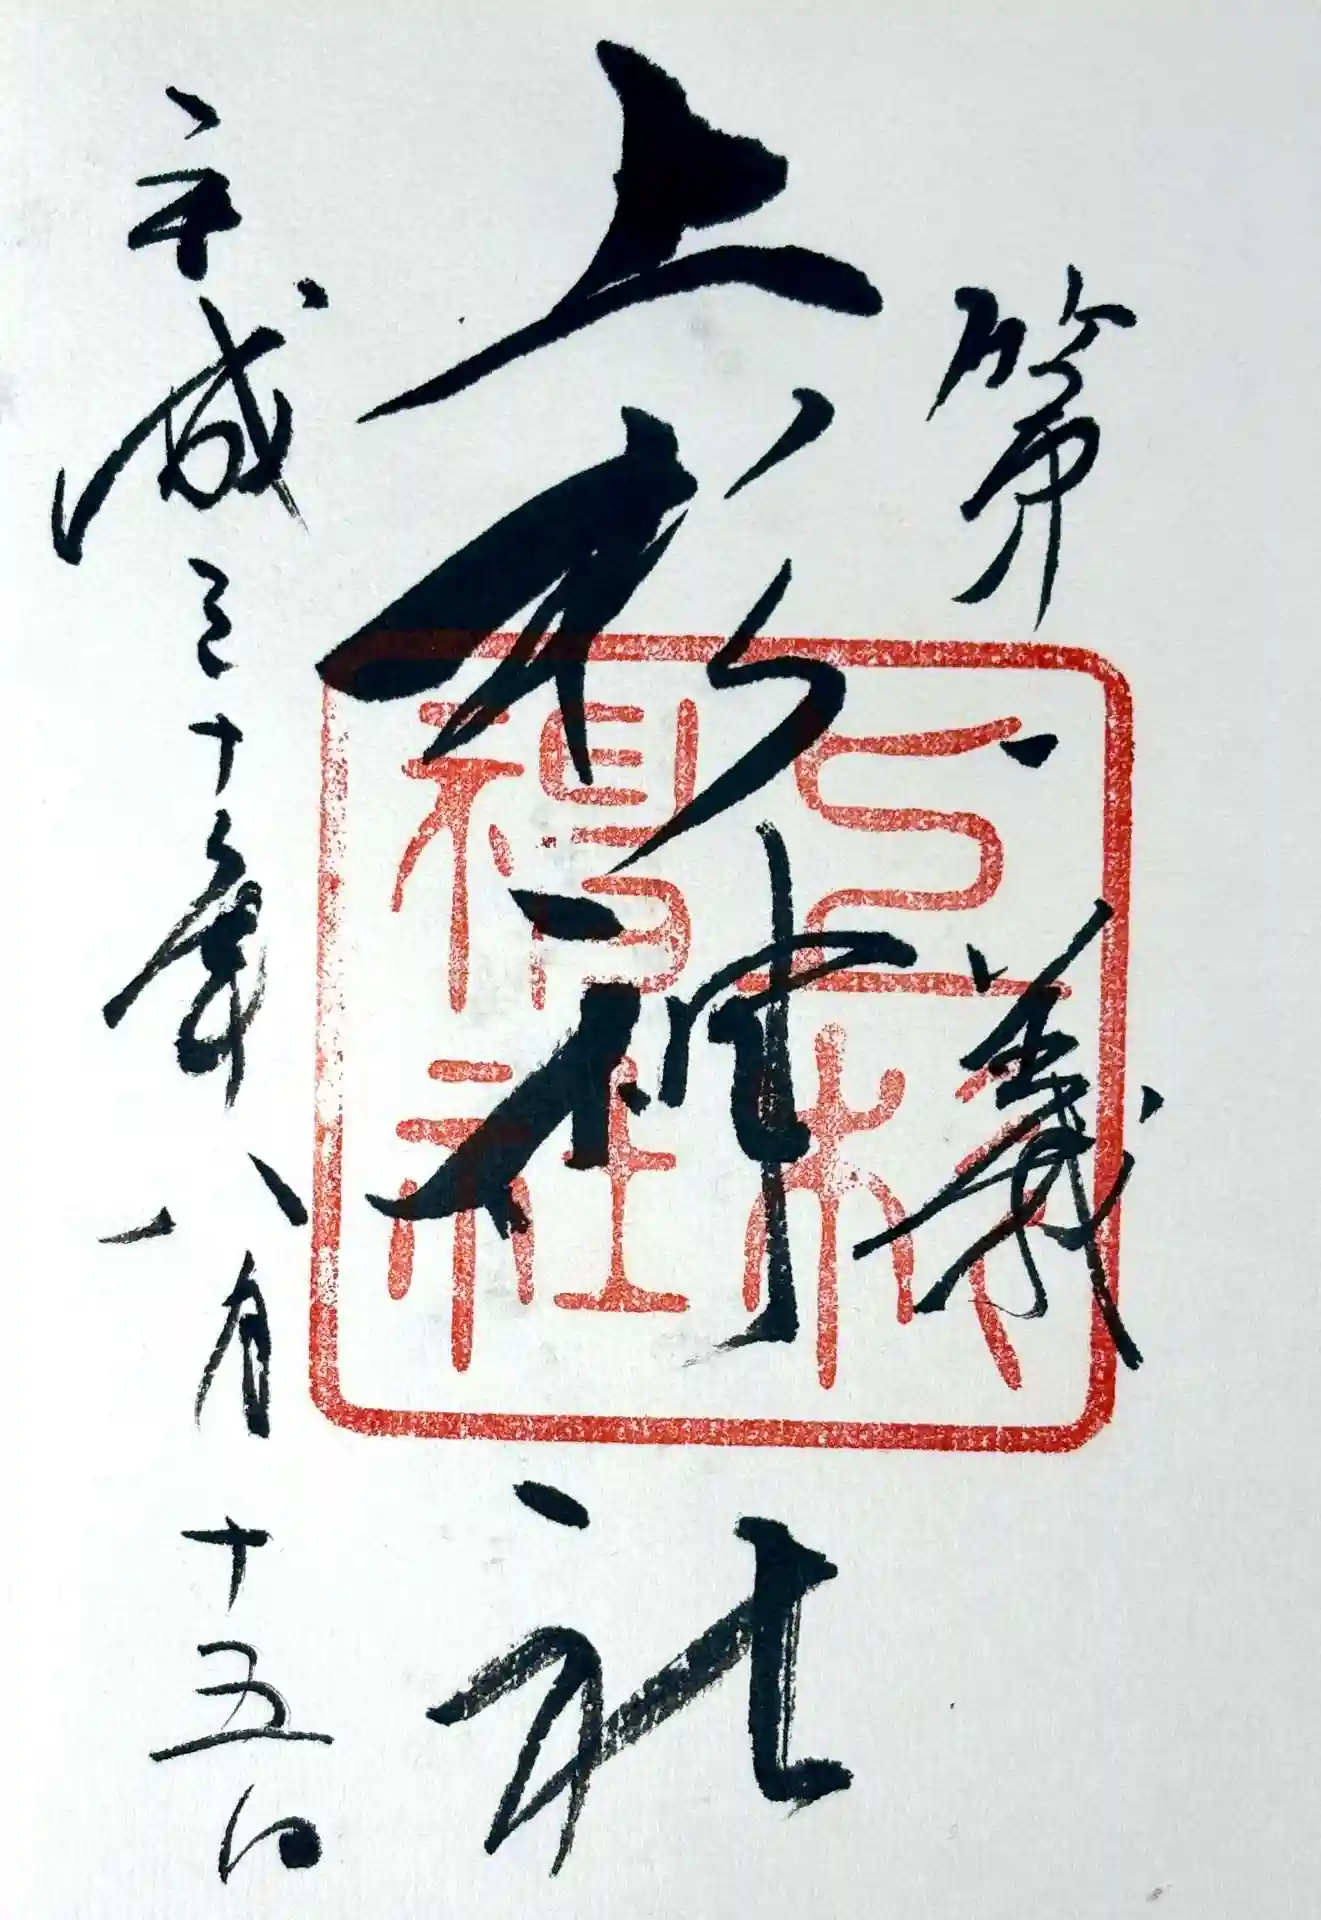 第一義
上杉神社
平成三十年八月十五日
上杉
神社